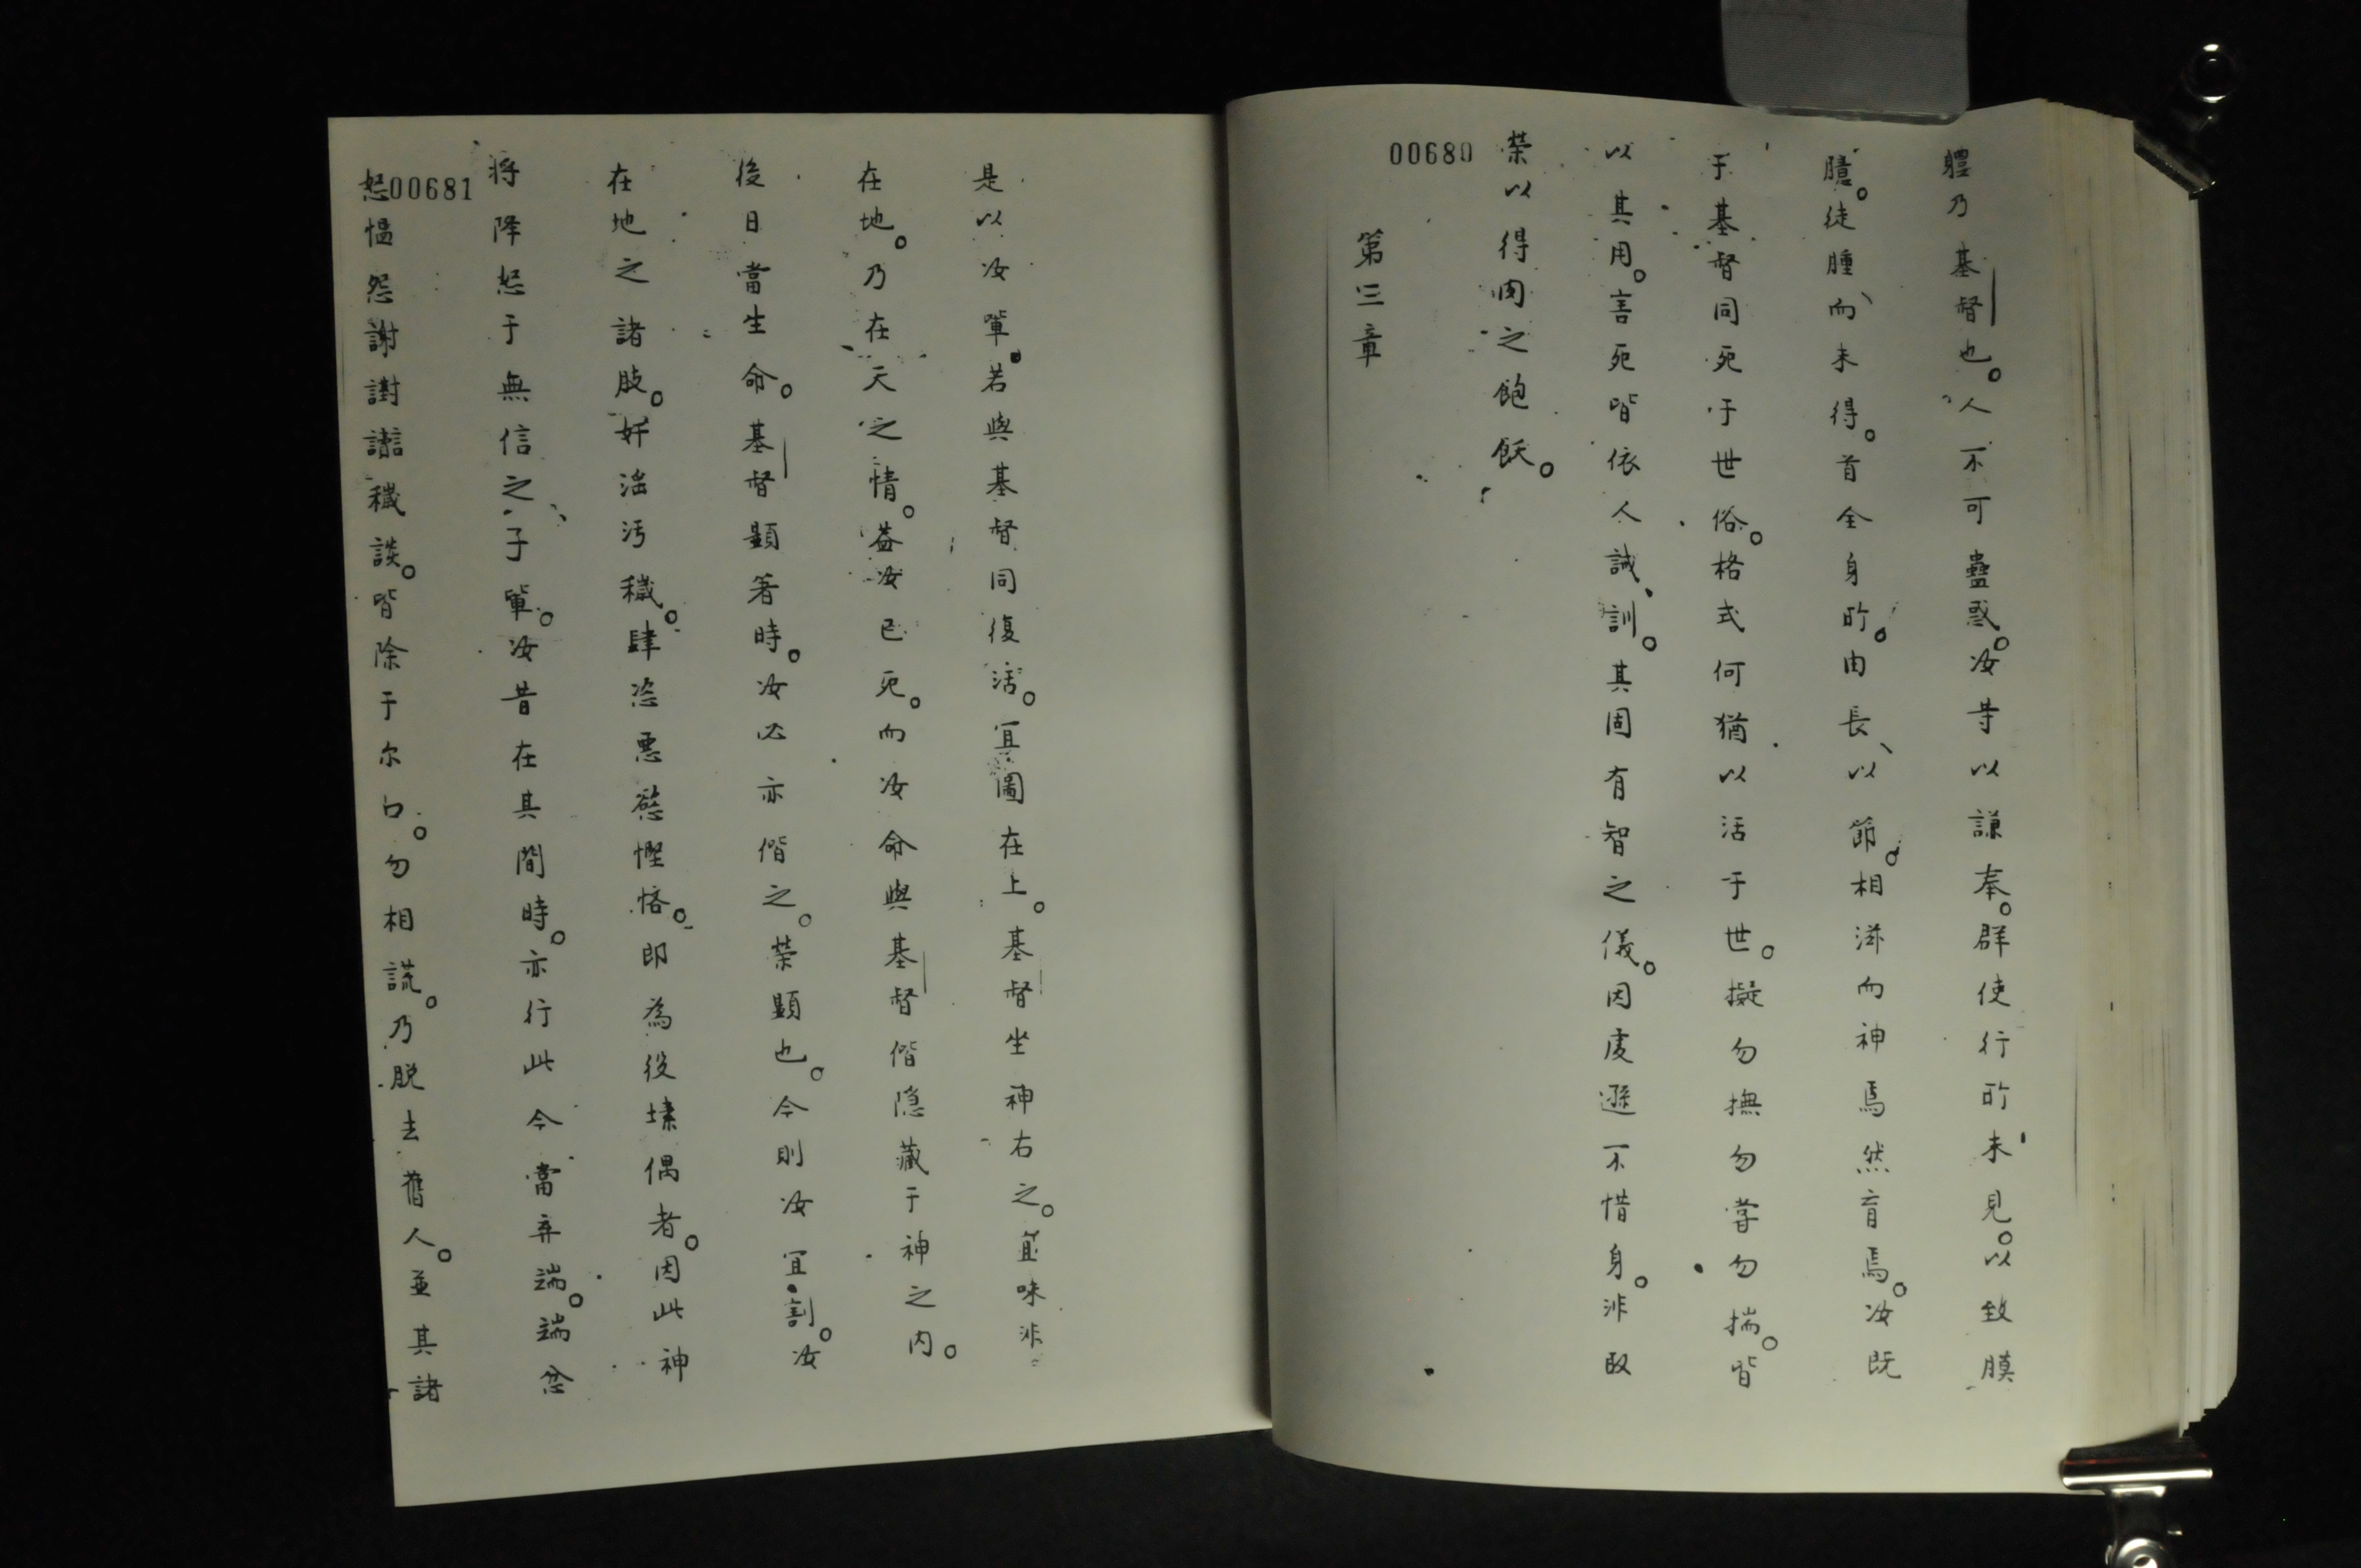 軆乃基督也。人不可蠱惑。汝等以謙奉。群使行所未見。以致膜
臆。徒腫而未得。首全身所。由長、以節。相滋而神焉然育焉。汝既
于基督同死于世俗。格式何猶以活于世。擬勿撫勿甞勿揣。皆
以其用。言死皆依人誡、訓。其固有智之儀。因虔遜不惜身。非取
榮以得肉之飽飫。
00680
第三章
是以汝輩。若與基督同復活。宜圖在上。基督坐神右之。宜味非
在地。乃在天之情。葢汝已死。而汝命與基督偕隐藏于神之内。
後日當生命。基督顕著時。汝必亦偕之。榮顕也。今則汝宜割。汝
在地之諸肢。奸淫污穢。肆恣悪慾慳悋。即為役塐偶者。因此神
将降怒于無信之子輩。汝昔在其間時。亦行此今當弃端。端忿
00681
怒愠怨謝讟穢談。皆除于尔口。勿相謊。乃脱去舊人。並其諸